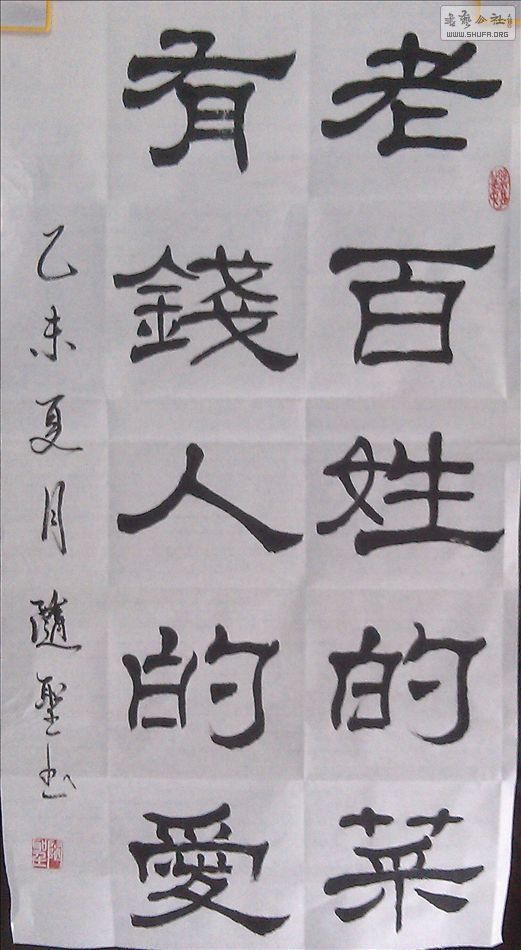 老百姓的菜
有錢人的愛
乙未夏月隨聖书
書藝公社
WWW.SHUFA.ORG